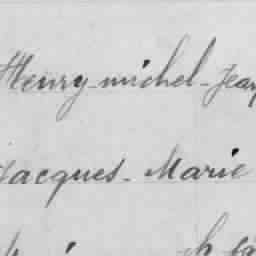 Henry-michel-Jean
Jacques-Marie